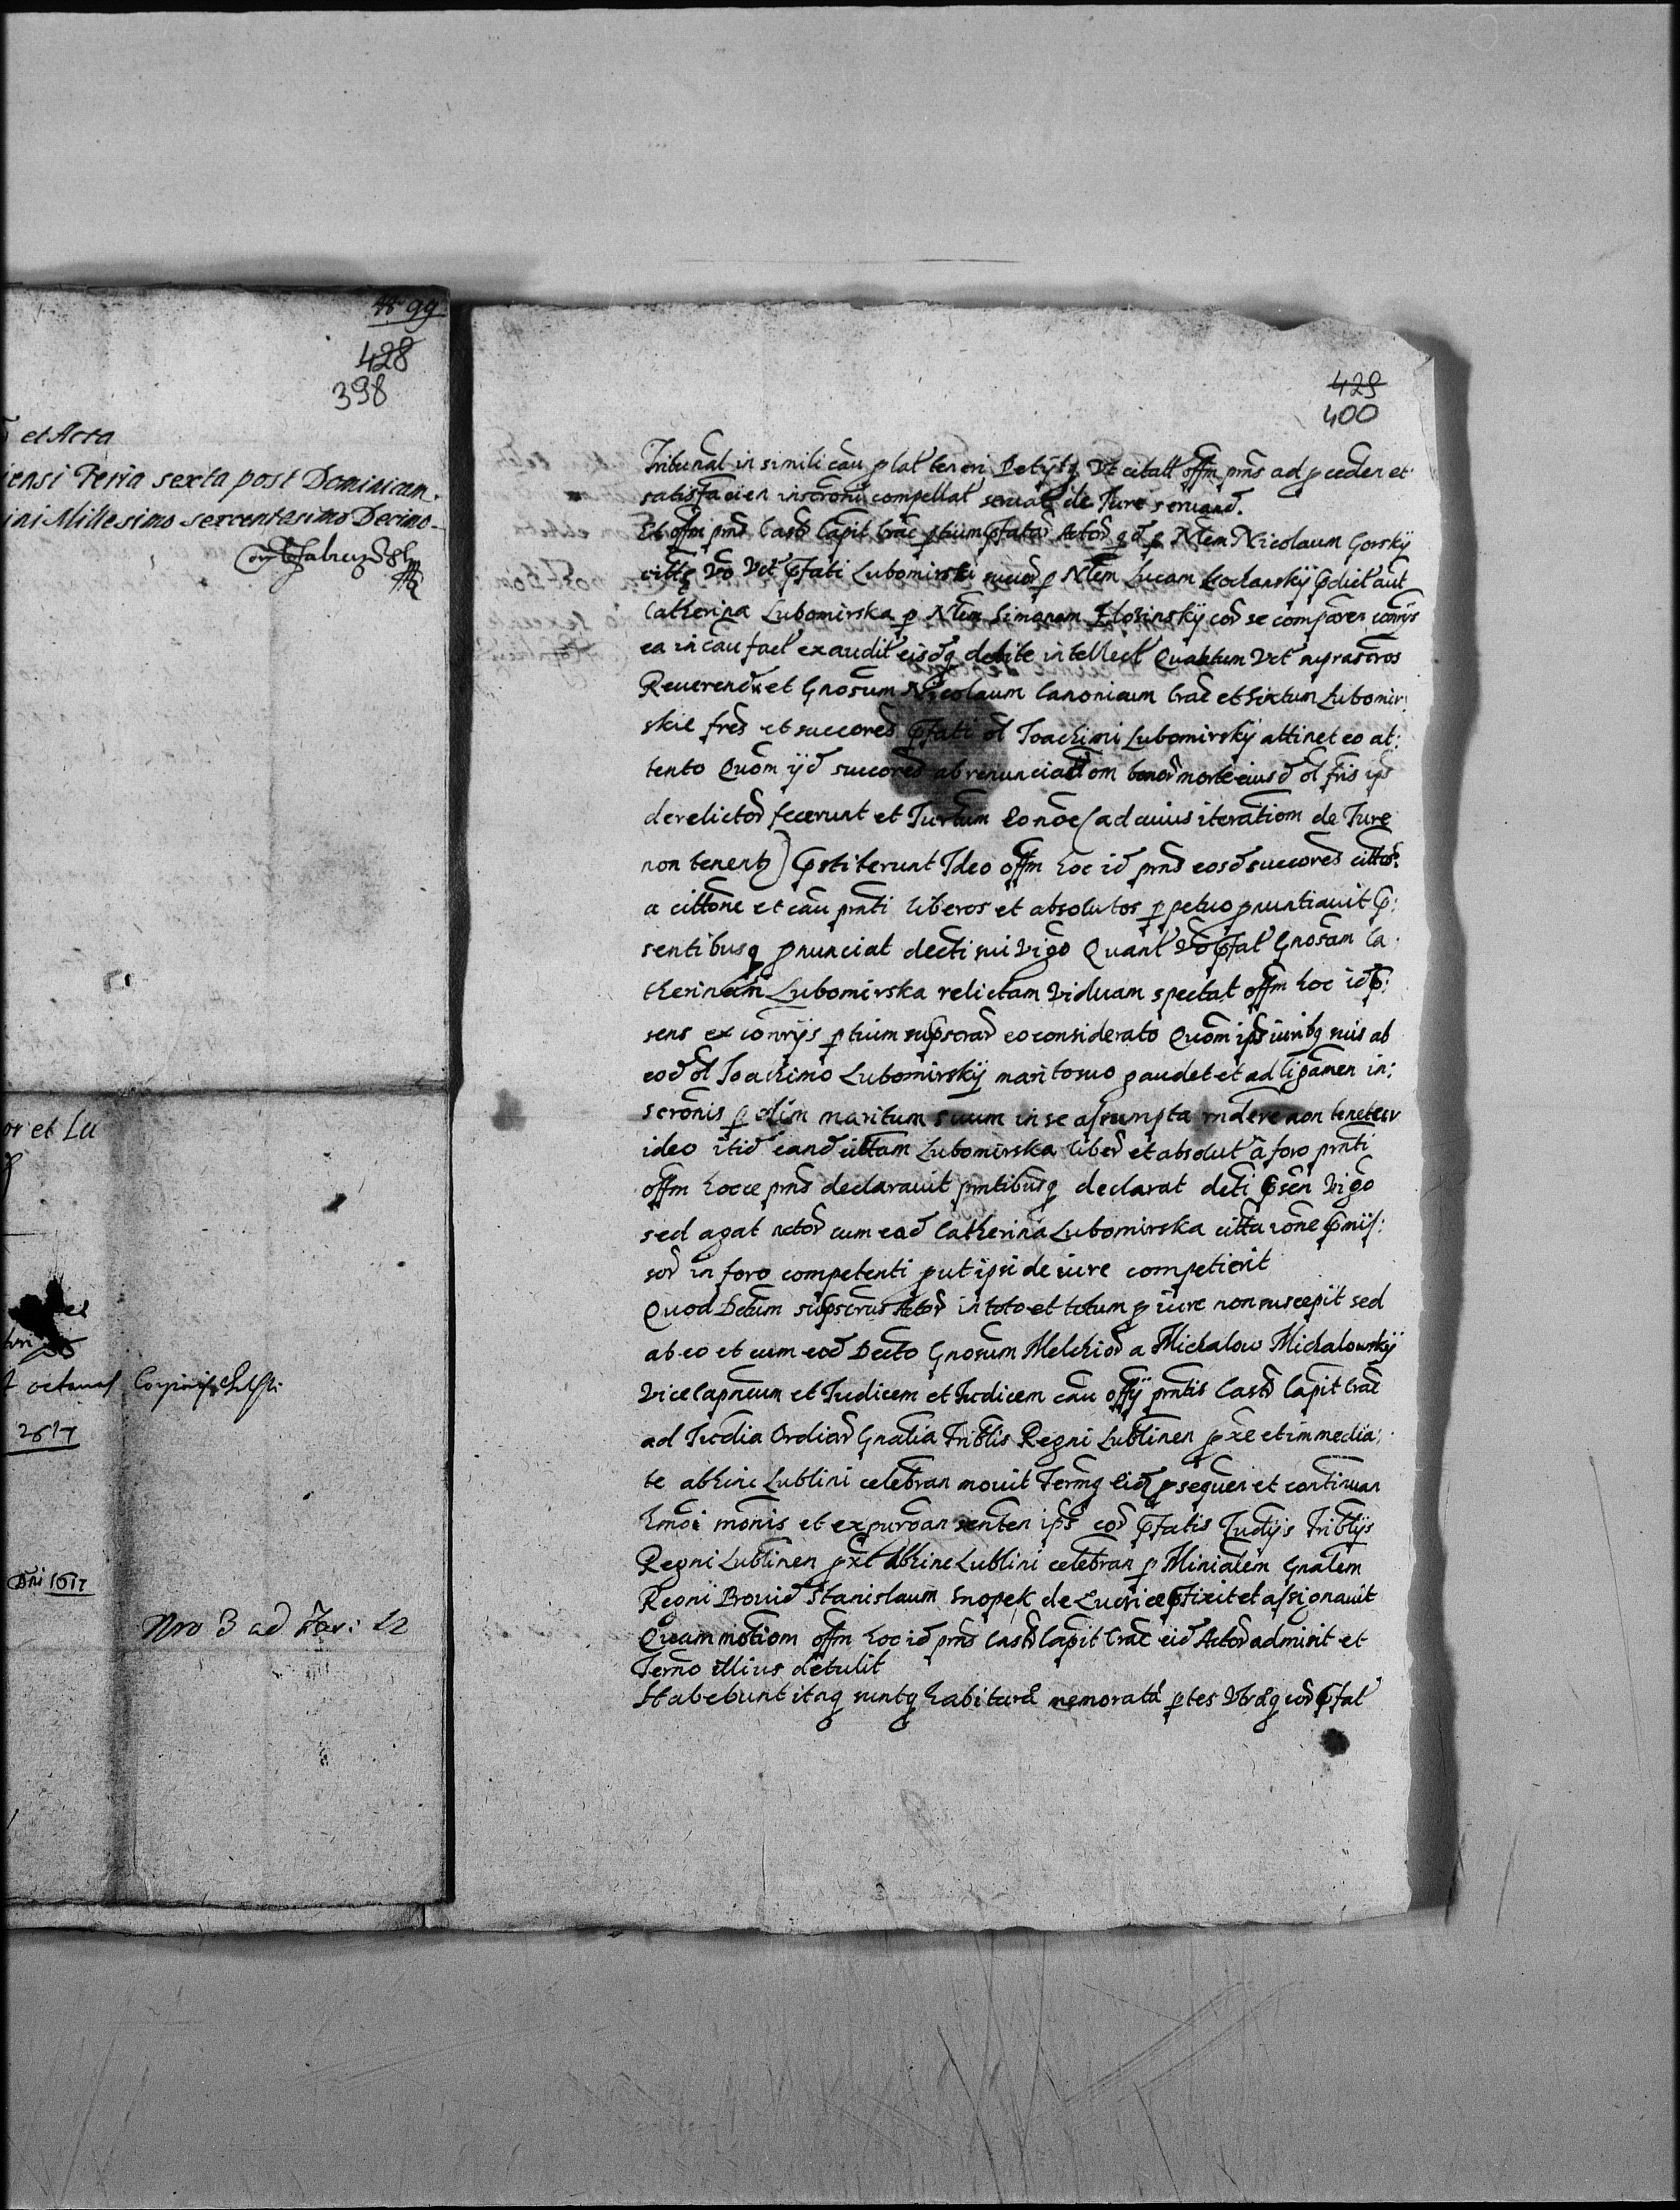 99
428
398
et Acta
iensi Feria sexta post Dominicam
ini Millesimo sexcentesimo Decimo
or et Lu
2617
Dni 1617
Nro 3 ad
429
400
Tribunal in simili cau plat teneri Petijtq Vt citatt offm pns ad pceden et
satisfacien inscroni compellat servat de Jure servand.
Et offm pns Castr Capit Crac ptium pfatar Actor qd p Nlem Nicolaum Gorskÿ
citte vo Vct pfati Lubomirski succor p Nlem Lucam Kochanskÿ pdict aut
Catherina Lubomirska p Nlem Simonem cor se comparen conrijs
ea in cau fact exaudit eisdq debite intellect Quantum Vct suprascros
Reverend et Gnosum Nicolaum Canonicum Crac et Sixtum Lubomir:
skie fres et succores pfati ol Joachimi Lubomirskÿ attinet eo at:
tento Quom ijd succores abrenunciationom bonor morte eiusd ol fris ips
derelictor fecerunt et Jurtum eo noe (ad cuius iterationom de Jure
non tenent) pstiterunt Ideo offm hoc id pns eosd succores cittos
a cittone et cau pnti liberos et absolutos ppetuo pnuntiavit p:
sentibusq pnunciat decti sui vigo Quant vo pfat Gnosam Ca:
therinam Lubomirska relictam viduam spectat offm hoc id p:
sens ex conrijs ptium supscrar eo considerato Quom ips iuribq suis ab
eod ol Joachimo Lubomirskÿ marito suo gaudet et ad ligamen in:
scronis p olim maritum suum in se assumpta rndere non tenetur
ideo itid eand cittam Lubomirska liber et absolut a foro pnti
offm hocce pns declaravit pntibusq declarat decti psen vigo
sed agat actor cum ead Catherina Lubomirska citta rone pmiss:
sor in foro competenti put ipsi de iure competierit
Quod Dectum supscrus Actor in toto et totum p iure non suscepit sed
ab eo et cum eod Decto Gnosum Melchior a Michalow Michalowskÿ
Vicecapneum et Judicem et Judicem cau offÿ pntis Castr Capit Crac
ad Judia Ordiar Gnalia Triblis Regni Lublinen pxe et immedia:
te abhinc Lublini celebran movit Termq eid psequen et continuan
hmoi monis et expurgan senten ips cor pfatis Judijs Triblijs
Regni Lublinen pxe abhinc Lublini celebran p Minialem Gnalem
Regni Provid Stanislaum Snopek de pfixit et assignavit
Quam motiom offm hoc id pns Castr Capit Crac eid Actor admisit et
Termo illius detulit
Habebunt itaq suntq habitura memorata ptes Vtraq cor pfat